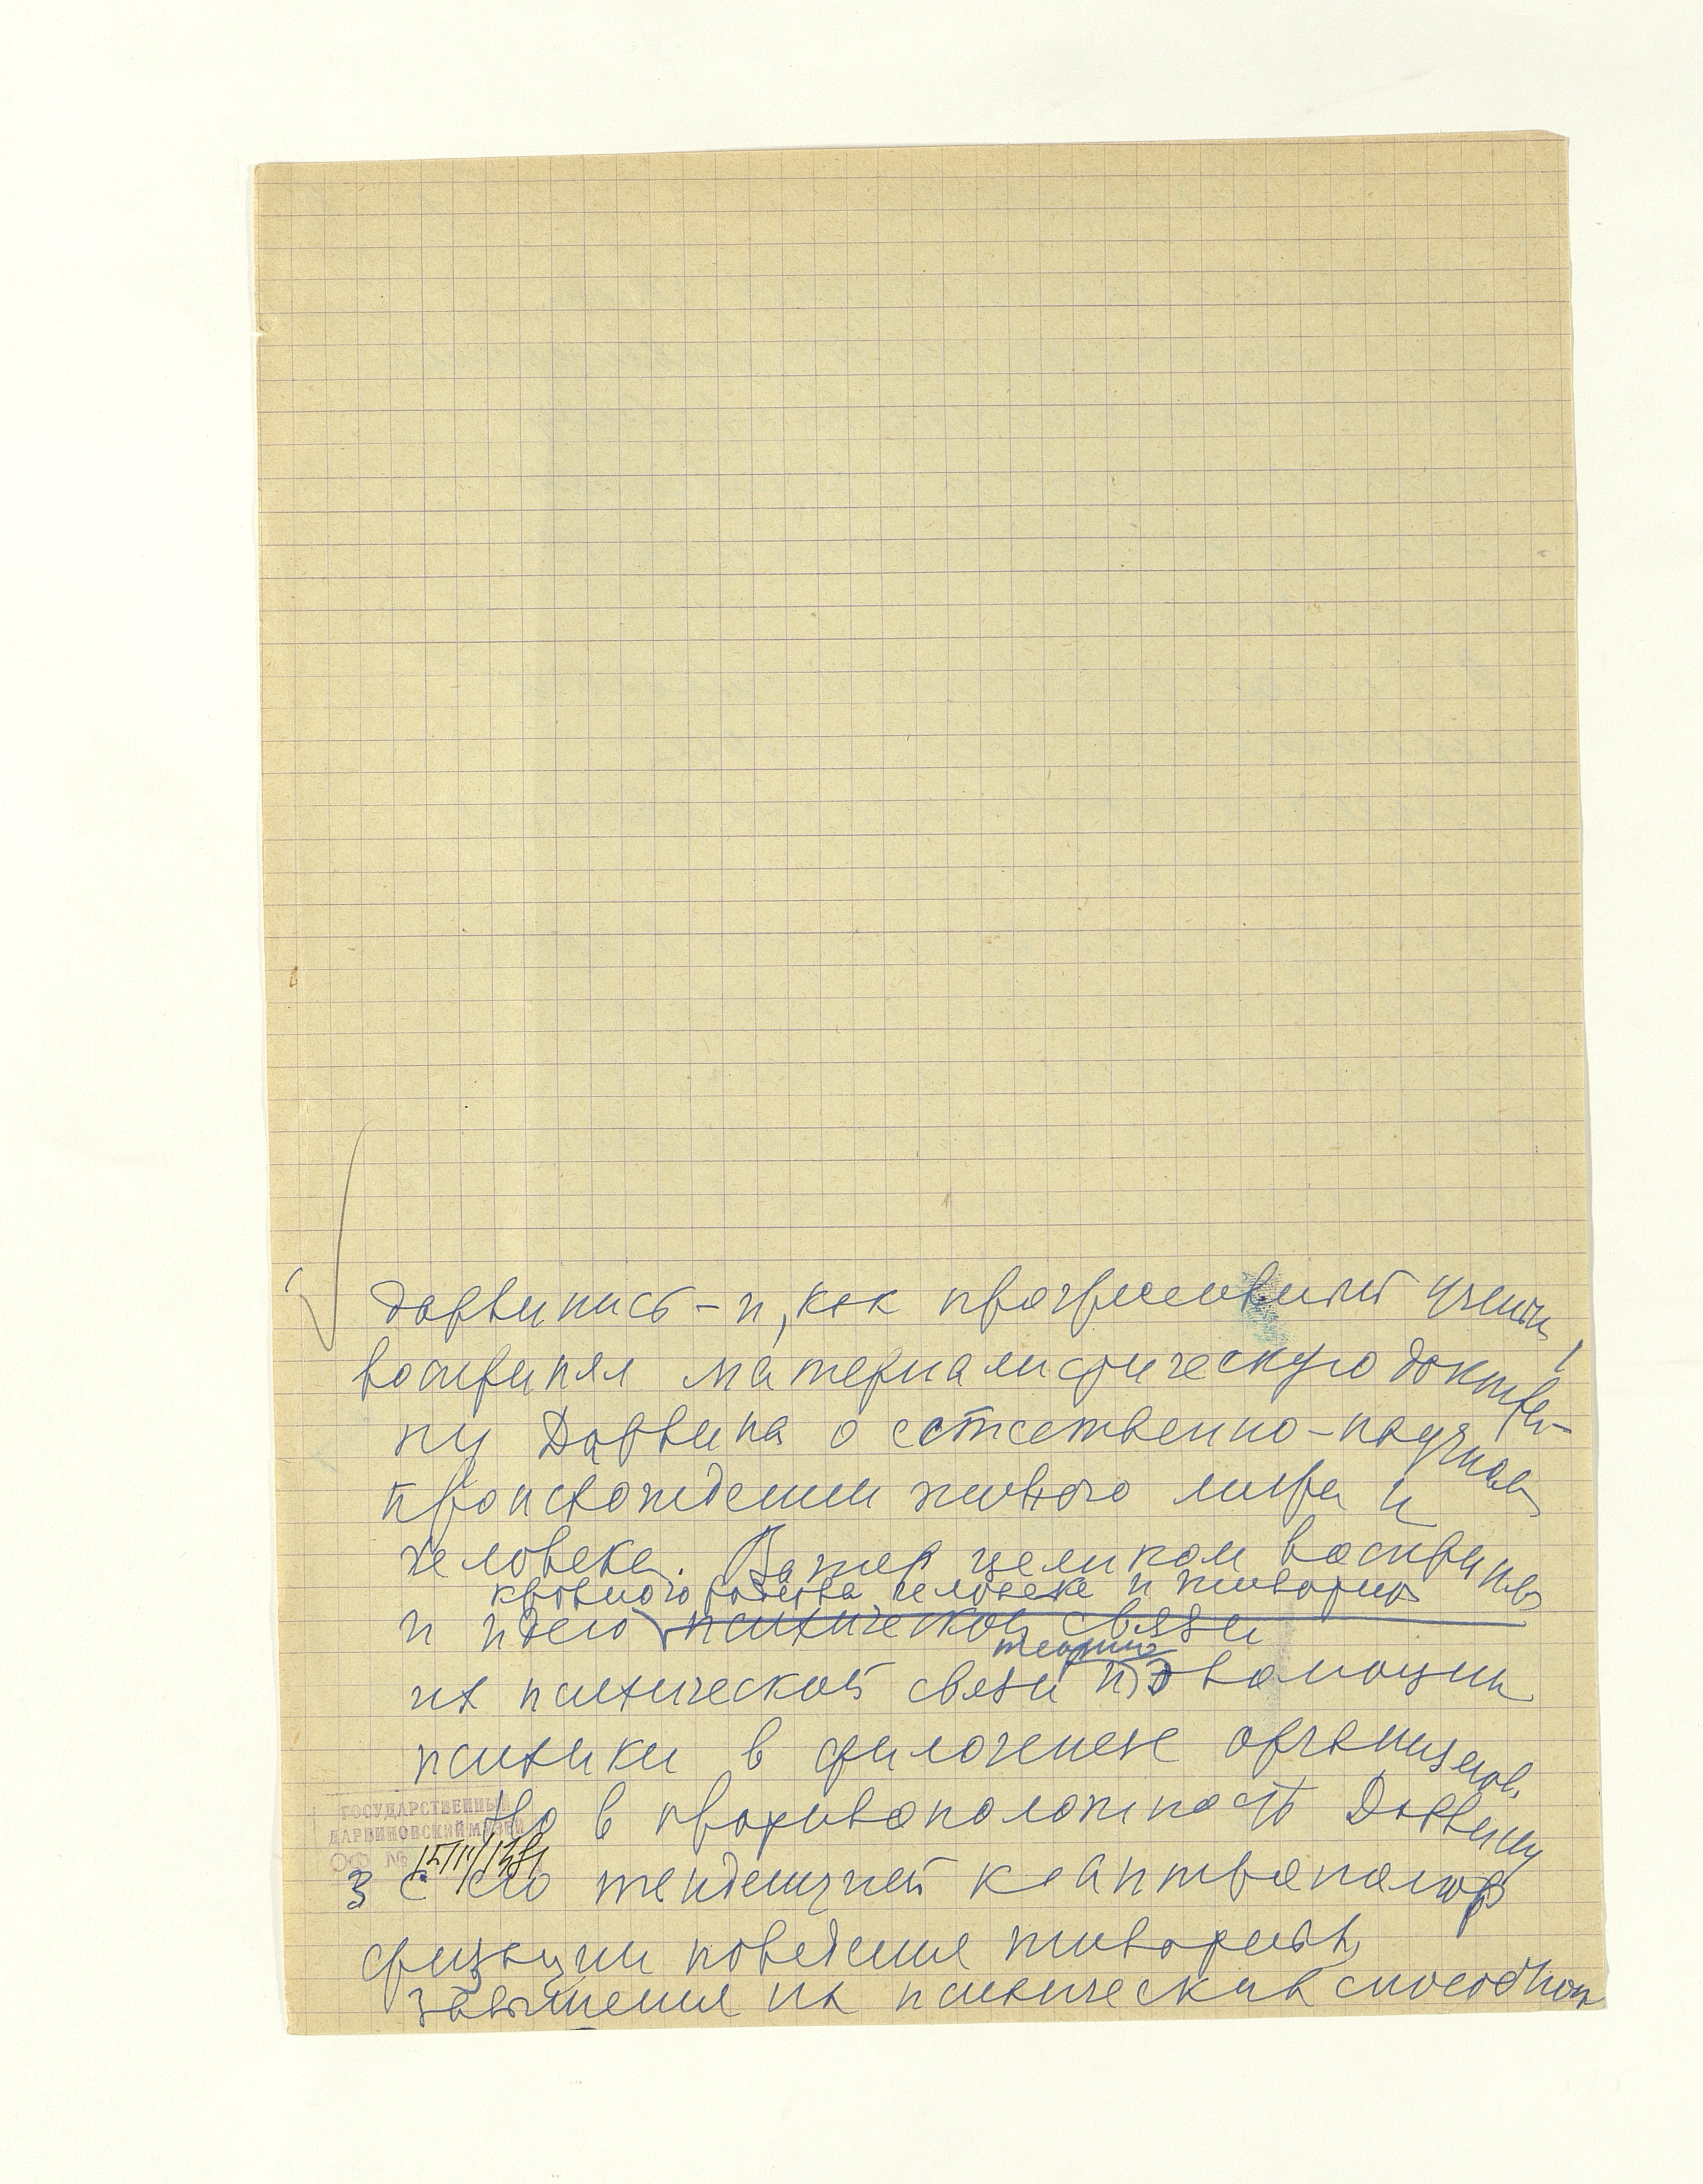 дарвинист – и, как прогрессивный учен.,
воспринял материалистическую доктри-
ну Дарвина о естественно-научном
происхождении живого мира и
человека. Вагнер целиком воспринял
кровного родства человека и животных
и идею психической связи
теорию
их психической связи и эволюции
психики в филогенезе организмов.
Но в противоположность Дарвину
ГОСУДАРСТВЕННЫЙ
ДАРВИНОВСКИЙ МУЗЕЙ
ОФ №
3 с его тенденцией к антропомор
физации поведения животных,
завышения их психических способнос